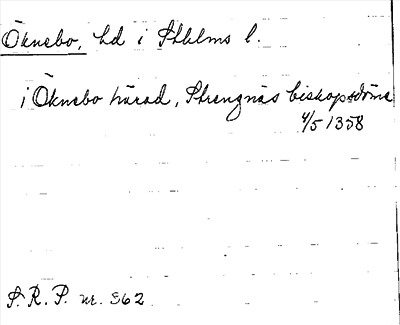 Öknebo, hd i Sthlms l.
i Öknebo härad, Strengnäs biskopsdöme
4/5 1358
S. R. P. nr. 362